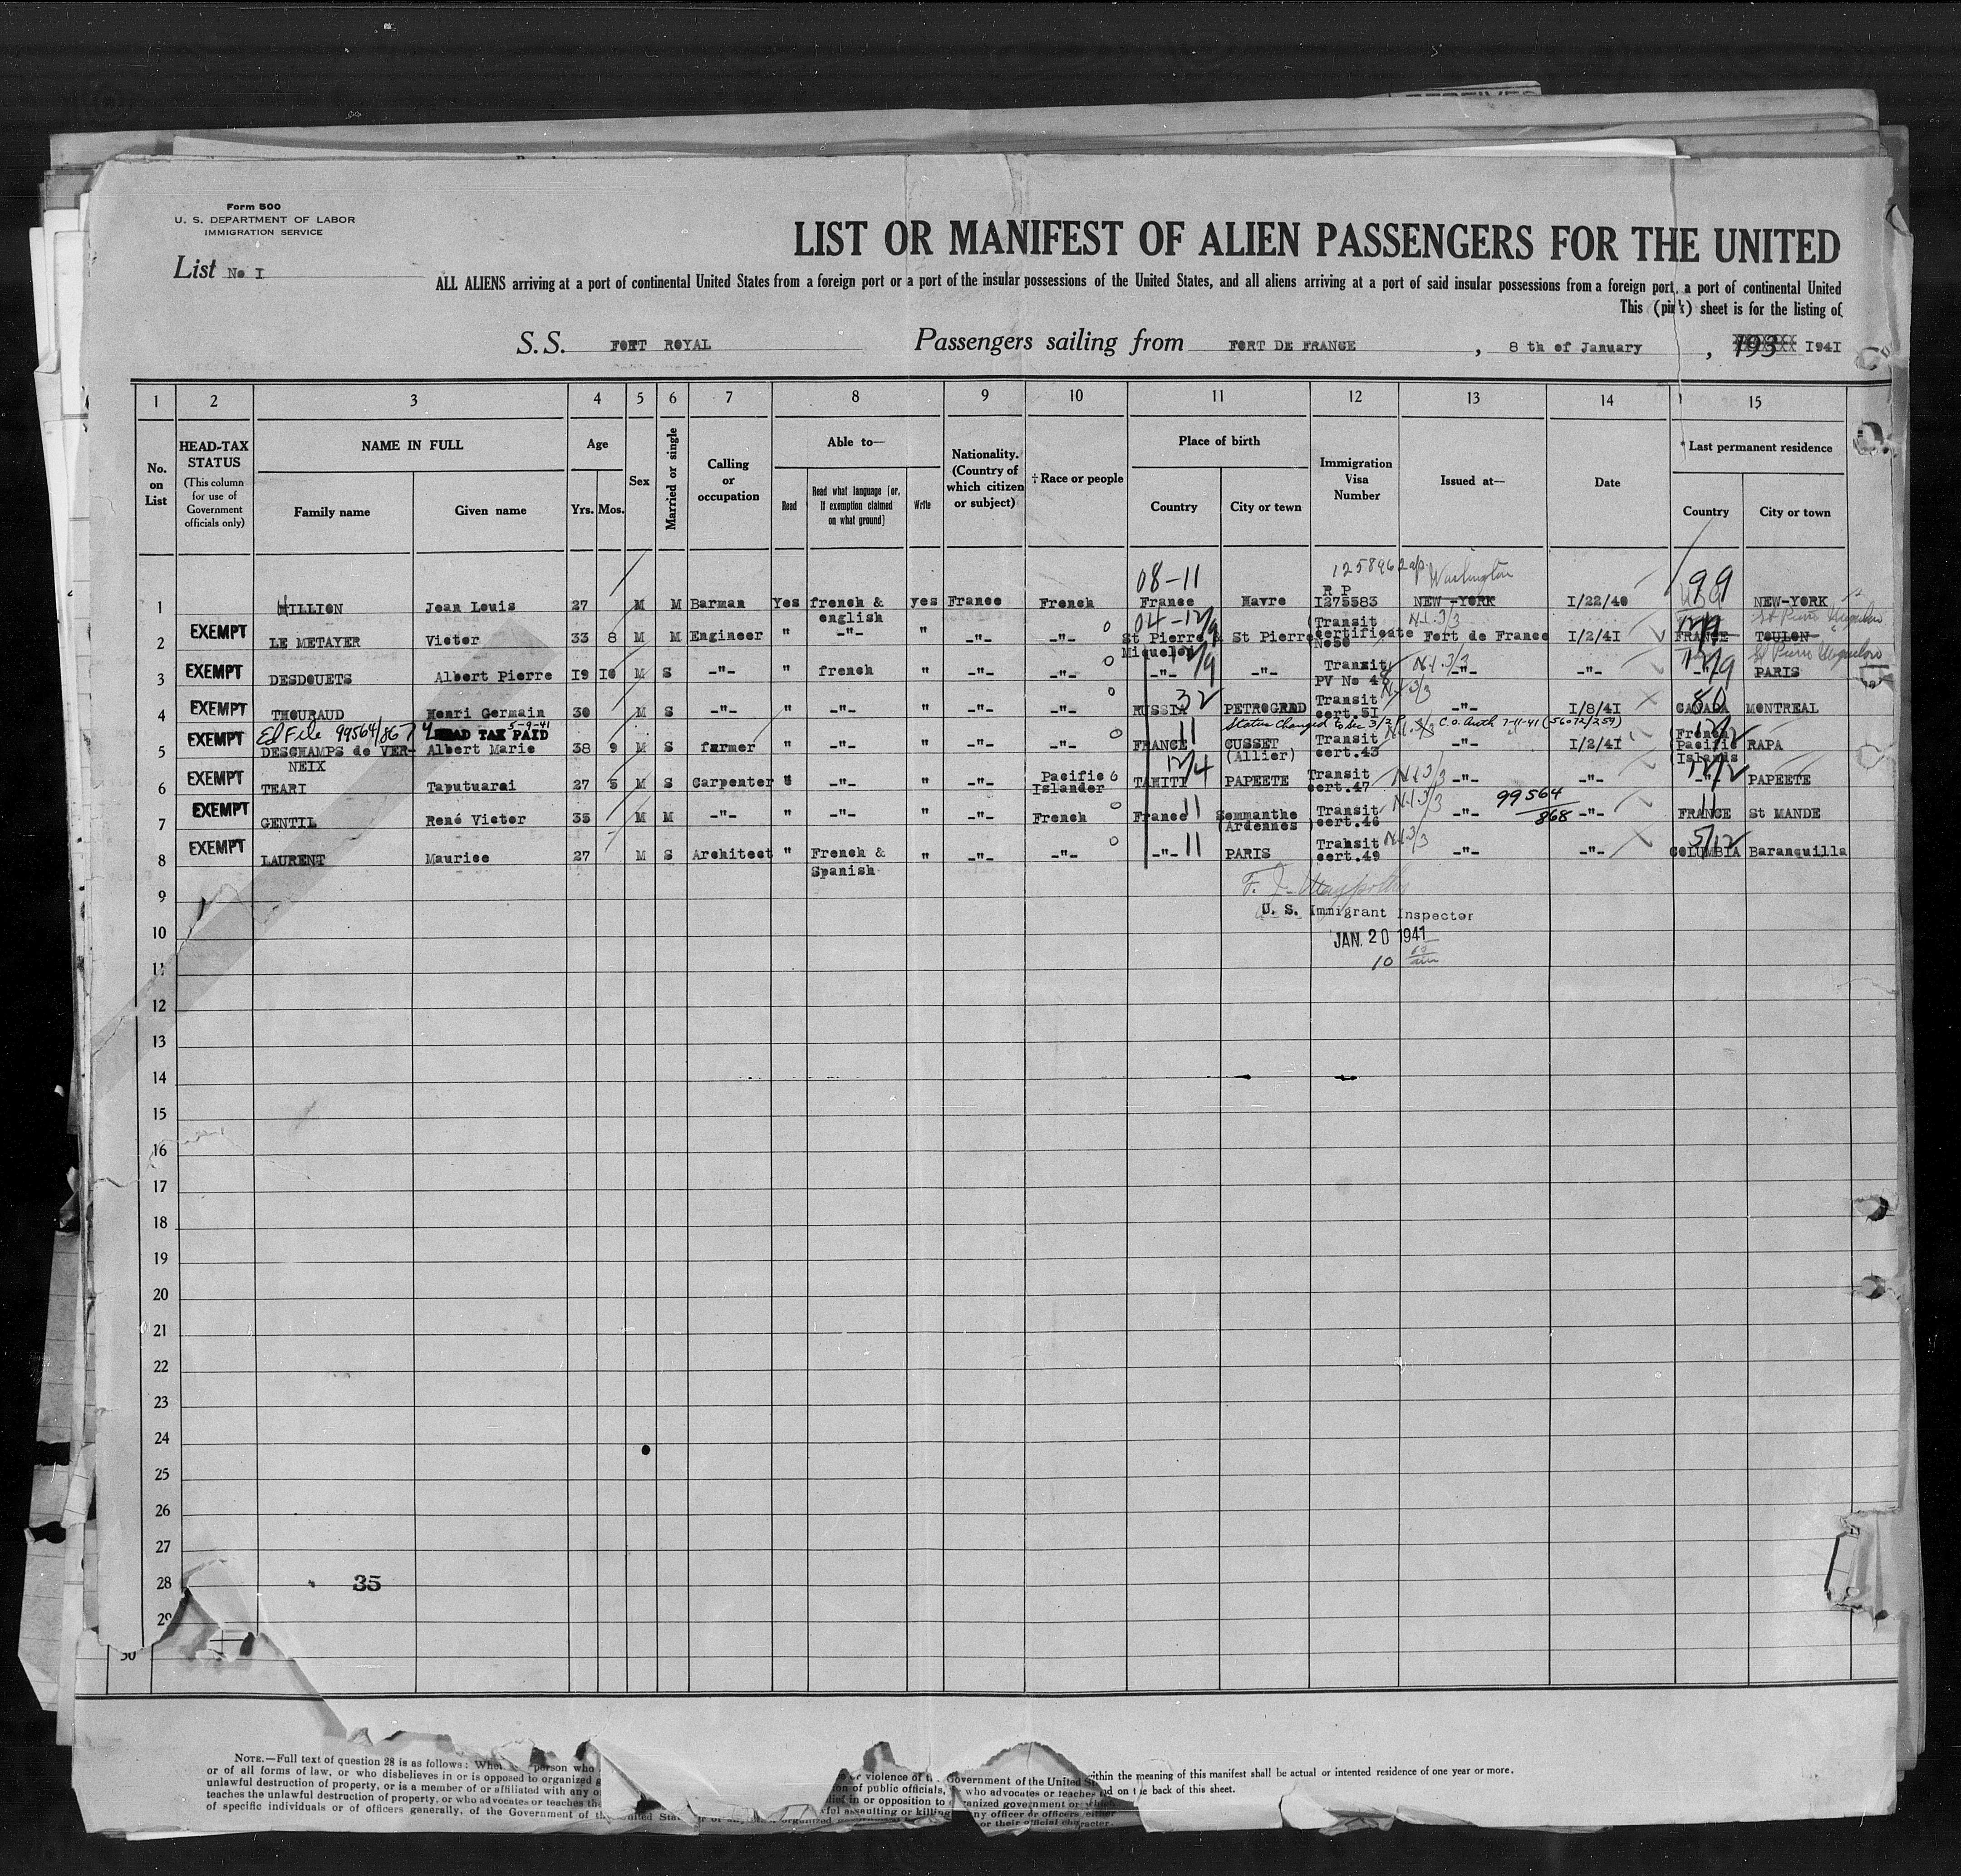 Form 500
U. S. DEPARTMENT OF LABOR
IMMIGRATION SERVICE
List No I
LIST OR MANIFEST OF ALIEN PASSENGERS FOR THE UNITED
ALL ALIENS arriving at a port of continental United States from a foreign port or a port of the insular possessions of the United States, and all aliens arriving at a port of said insular possessions from a foreign port, a port of continental United
This (pink) sheet is for the listing of
S.S. FORT ROYAL Passengers sailing from FORT DE FRANCE , 8 th of January , 193 I94I
1 2 3 4 5 6 7 8 9 10 11 12 13 14 15
No. on List
HEAD-TAX STATUS (This column for use of Government officials only)
NAME IN FULL Family name Given name
Age Yrs. Mos.
Sex
Married or single
Calling or occupation
Able to— Read Read what language [or, if exemption claimed on what ground] Write
Nationality. (Country of which citizen or subject)
† Race or people
Place of birth Country City or town
Immigration Visa Number
Issued at—
Date
* Last permanent residence Country City or town
08-11 125896 Washington 99
1 HILLION Jean Louis 27 M M Barman Yes french & english yes France French France Havre R P I275583 NEW-YORK I/22/40 NEW-YORK
04-12/9 N.I.3/3 St Pierre
2 EXEMPT LE METAYER Victor 33 8 M M Engineer " -"- " -"- -"- St Pierre & Miquelon St Pierre Transit certificate No50 Fort de France I/2/4I FRANCE TOULON
12/9 N.I.3/3 12/9 St Pierre
3 EXEMPT DESDOUETS Albert Pierre I9 I0 M S -"- " french " -"- -"- -"- -"- Transit PV No 4 -"- -"- -"- PARIS
32 N.I.3/3
4 EXEMPT THOURAUD Henri Germain 30 M S -"- " -"- " -"- -"- RUSSIA PETROGRAD Transit cert.5I -"- I/8/4I CANADA MONTREAL
Ed File 99564/867 5-9-41 HEAD TAX PAID Status Changed to Sec 3/2 C.O. Auth 7-11-41 (56072/259)
5 EXEMPT DESCHAMPS de VERNEIX Albert Marie 38 9 M S farmer " -"- " -"- -"- FRANCE 11 CUSSET (Allier) Transit cert.43 -"- I/2/4I French Pacific Islands RAPA
6 EXEMPT TEARI Taputuarai 27 5 M S Carpenter " -"- " -"- Pacific Islander TAHITI 12/4 PAPEETE Transit cert.47 N.I.3/3 -"- -"- -"- PAPEETE
7 EXEMPT GENTIL René Victor 35 M M -"- " -"- " -"- French France 11 Semmanthe (Ardennes) Transit cert.46 N.I.3/3 -"- 99564/868 -"- FRANCE 11 St MANDE
8 EXEMPT LAURENT Maurice 27 M S Architect " French & Spanish " -"- -"- -"- 11 PARIS Transit cert.49 N.I.3/3 -"- -"- COLUMBIA 5/12 Baranquilla
9
U. S. Immigrant Inspector
10
JAN. 20 1941
11
10 00 am
12
13
14
15
16
17
18
19
20
21
22
23
24
25
26
27
28 35
29
30
NOTE.—Full text of question 28 is as follows: person who
or of all forms of law, or who disbelieves in or is opposed to organized
unlawful destruction of property, or is a member of or affiliated with any
teaches the unlawful destruction of property, or who advocates or teaches the
of specific individuals or of officers generally, of the Government of
or violence of Government of the United
of public officials, who advocates or teaches
in or opposition to organized government or
assaulting or killing any officer or officers either
or their official character.
within the meaning of this manifest shall be actual or intended residence of one year or more.
on the back of this sheet.